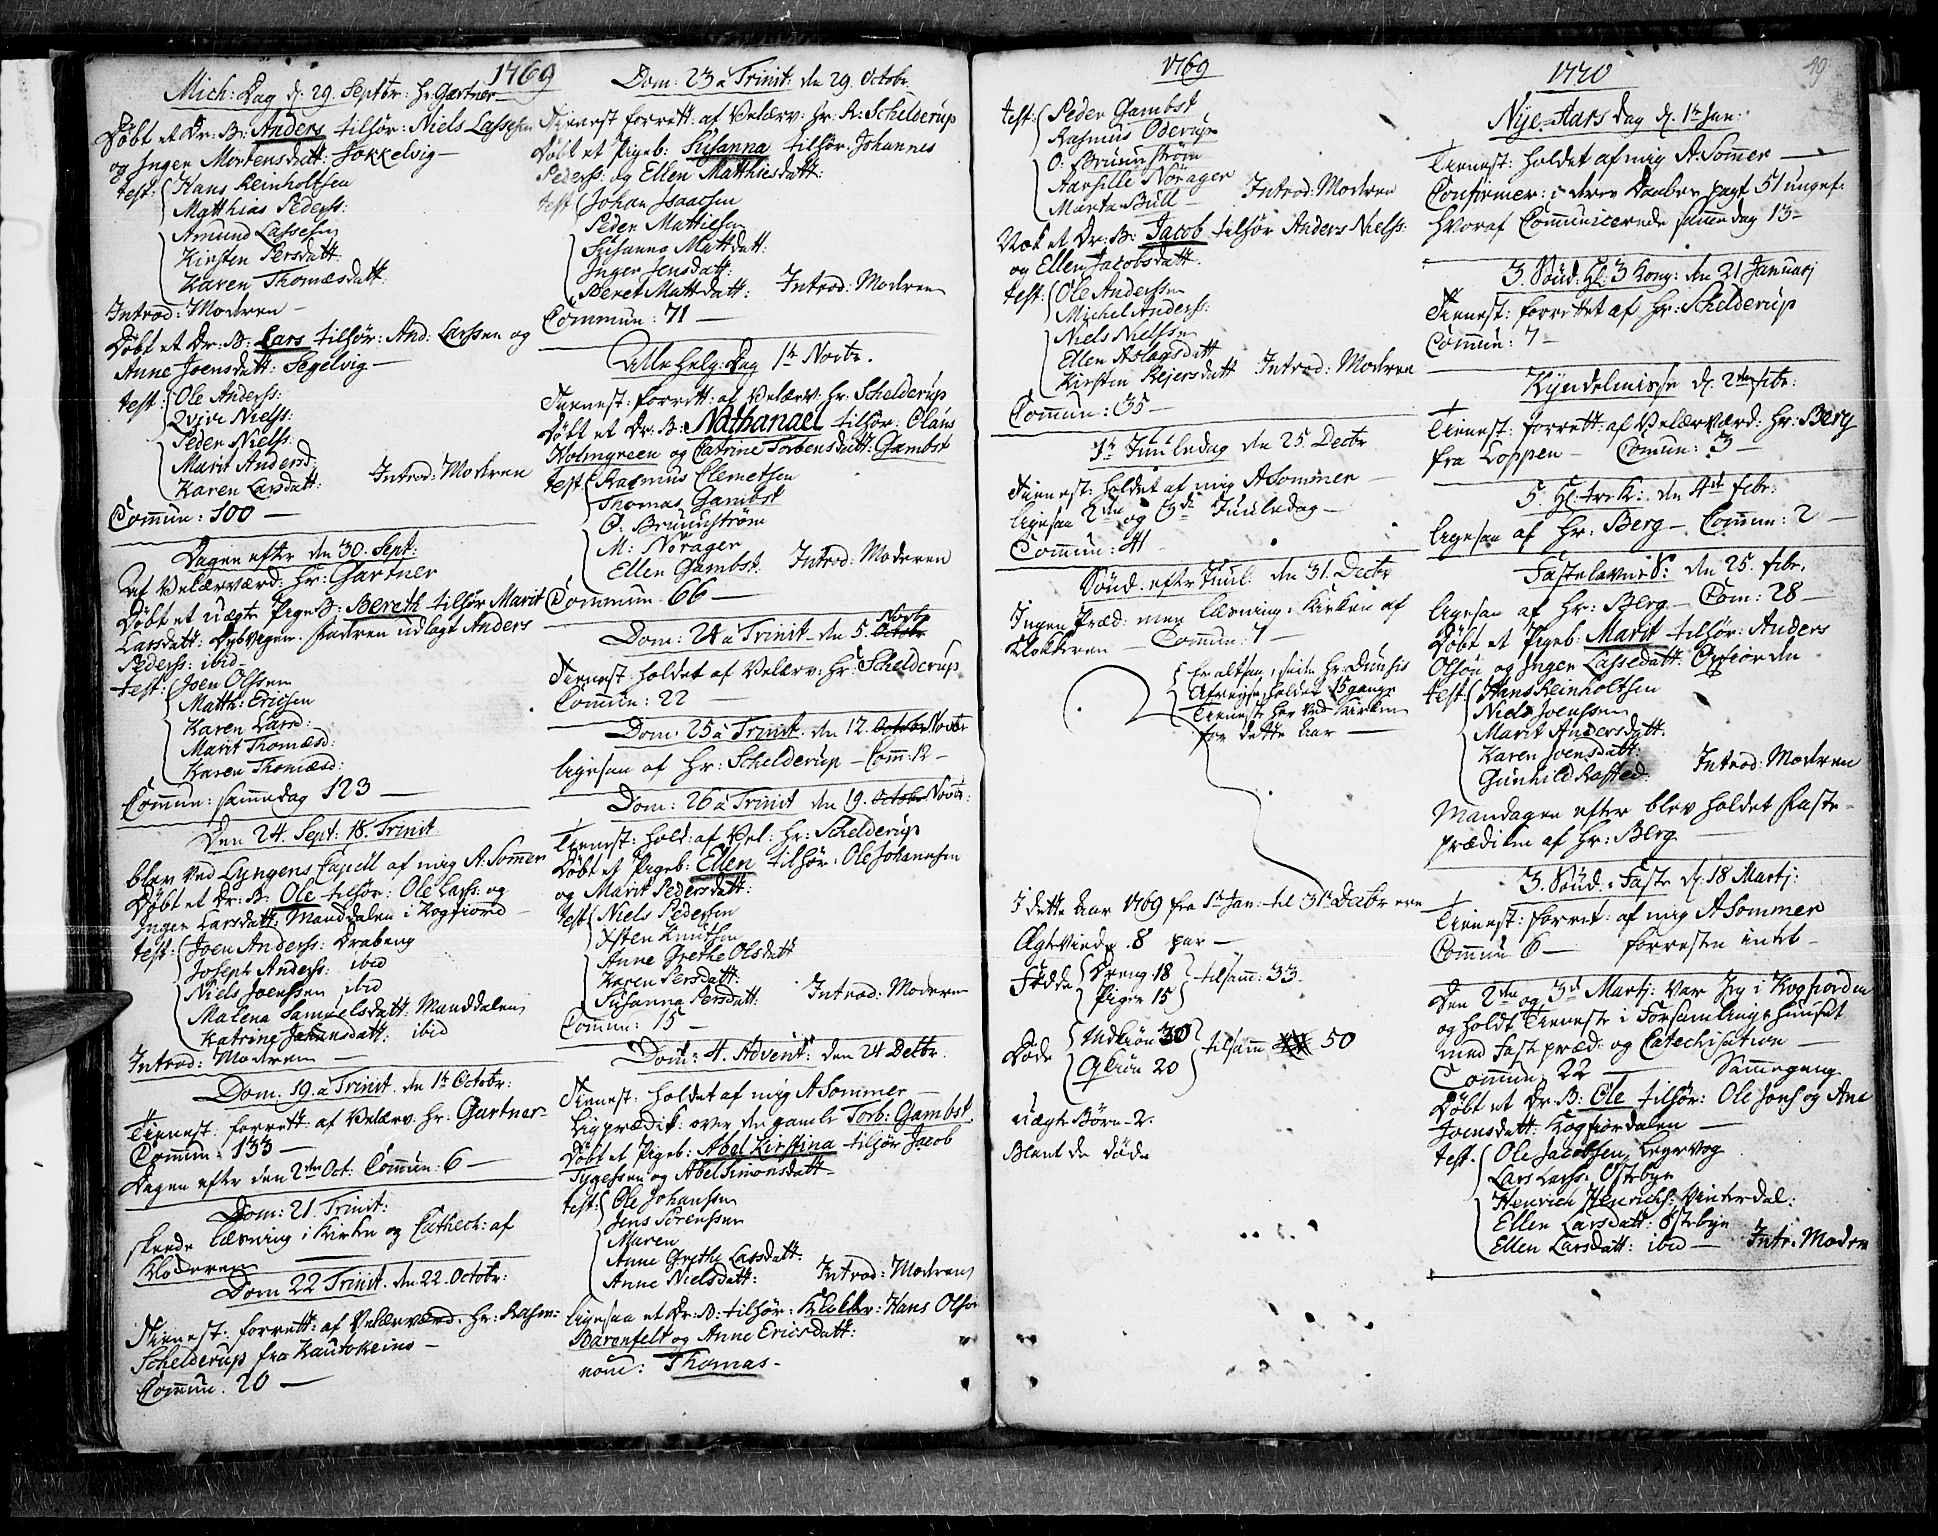 1769
Mich: Dag d. 29. Septbr: Hr Gærtner
Døbt et Dr: B: Anders tilhør: Niels Lassesen
og Inger Mortensdatt: Jokkelvig
test: Hans Reinholtsen
Matthias Pederss:
Amund Lassesen
Kirsten Persdatt:
Karen Thomæsdatt:
Introd: Moderen
Døbt et Dr: B: Lars tilhør: And: Larssen og
Anne Joensdatt: Segelvig
test: Ole Anderss:
Qvive Nielss:
Peder Nielss:
Marit Andersd:
Karen Larsdatt: Introd: Moderen
Commun: 100
Dagen efter den 30. Sept:
af Velærværd: Hr: Gartner
Døbt et uægte Pige B: Bereth tilhør Marit
Larsdatt: Dybvigen. fadren udlagt Anders
Pederss: ibid
test: Joen Olssen
Matth: Ericsen
Karen Larsd:
Marit Thomæsd:
Karen Thomæsd:
Commun: samedag 123
Den 24. Sept: 18. Trinit
blev ved Lyngens Capell af mig A. Sommer
Døbt et Dr: B. Ole tilhør: Ole Larss: og
Inger Larsdatt: Manddalen i Kogfiord
test: Joen Anderss: Drabeng
Joseph Anderss: ibid
Niels Joenssen ibid
Malena Samuelsdatt: Manddalen
Katrine Johansdatt: ibid
Introd: Moderen
Dom. 19. a Trinit. den 1te Octobr:
Tienest: forrett: af Velærv: Hr: Gartner
Commun: 133
Dagen efter den 2den Oct: Commun: 6
Dom: 21 Trinit:
skeede læsning i Kirken og Cathech: af
Klockeren
Dom 22 Trinit. den 22. Octobr:
Tienest: forrett: af Velærværd. Hr: Rasm:
Schelderup fra Kautokeino
Commun. 20
Dom: 23 a Trinit: den 29. Octobr.
Tienest forrett: af Velærv: Hr: R: Schelderup
Døbt et Pigeb: Susanna tilhør Johannes
Pederss: og Ellen Matthiesdatt:
test Johan Isaachsen
Peder Mattiesen
Susanna Mattdatt:
Inger Jensdatt:
Beret Mattdatt: Introd: Moderen
Commun: 71
Alle Helg: Dag 1te Novbr.
Tienest: forrett: af Velærv: Hr: Schelderup
Døbt et Dr: B: Nathanael tilhør: Claus
Holmgreen og Catrine Torbensdatt: Gambst
test Rasmus Clemetsen
Thomas Gambst
O: Bruunstrøm
M: Nørager
Ellen Gambst. Introd: Moderen
Commun. 66
Dom: 24 a Trinit. den 5. Octobr Novbr
Tienest: holdet af Velærv: Hr: Schelderup
Commun: 22
Dom: 25 a Trinit. den 12. Octobr Novbr
ligesaa af Hr: Schelderup Comm: 12
Dom: 26 a Trinit den 19. Octobr Novbr:
Tienest: hold: af Vel: Hr: Schelderup
Døbt et Pigeb: Ellen tilhør: Ole Johannsen
og Marit Pedersdatt:
test Niels Pedersen
Xsten Knutsen
Anne Grethe Olsdatt
Karen Persdatt:
Susanna Persdatt: Introd: Moderen
Commun: 15
Dom: 4. Advent: den 24 Decbr:
Tienest: holdet af mig A Sommer
Ligprædik: over den gamle Torb: Gambst
Døbt et Pigeb: Abel Kirstina tilhør Jacob
Tygessen og Abel Simonsdatt
test: Ole Johanssen
Jens Sørenssen
Maren
Anne Grethe Larsdatt.
Anne Nielsdatt: Introd: Moderen
ligesaa et Dr: B: tilhør: Klokker: Hans Olsen
Barenfelt og Anne Ericsdatt:
nom: Thomas
1769
test: Peder Gambst
Rasmus Oderup
O: Bruunstrøm
Aarsille Nørager
Marta Bull Introd: Moderen
Nok et Dr: B: Jacob tilhør Anders Nielss:
og Ellen Jacobsdatt.
test: Ole Anderssen
Michel Anderss:
Niels Nielssen
Ellen Aslagsdatt
Kirsten Rejersdatt Introd: Moderen
Commun: 35
1te Juuledag den 25. Decbr
Tienest: holdet af mig A Sommer
ligesaa 2den og 3die Juuledag
Commun: 41
Sønd. efter Juul. den 31. Decbr
Ingen Præd: men læsning i Kirken af
Klokkeren Commun: 7
Er altsaa, siden Hr: Dunsis
Afreyse, holdet 15 gange
Tieneste her ved Kirken
for dette Aar
I dette Aar 1769 fra 1te Jan: til 31te Decbr ere
Ægteviede 8 par
Fødde Dreng 18
Piger 15 tilsam: 33.
Døde Mdkiøn 30
Qkiøn 20 tilsamm 50
uægte Børn 2.
Blant de døde
1770 49
Nye-Aars dag d. 1te Jan:
Tienest: holdet af mig A. Sommer
Confirmer: i deres Daabes pagt 51 unge f:
hvoraf Communicerede samme dag 13
3. Sønd: Hl: 3 Kong: den 21 Januarj
Tienest: forrettet af Hr: Schelderup
Commun: 7
Kyndelmisse d. 2den febr:
Tienest: forrett: af Velærværd: Hr: Berg
fra Loppen Comun: 3
5 Hl: tre K: den 4de febr:
ligesaa af Hr: Berg Commun: 2
Fastelavns S: den 25. febr.
ligesaa af Hr: Berg Com: 28
Døbt et Pigeb: Marit tilhør: Anders
Olsøn og Inger Lassedatt: Oxfiorden
test: Hans Reinholtsen
Niels Joenssen
Marit Andersdatt.
Karen Joensdatt:
Gunhild Rafted. Introd: Moderen
Mandagen efter blev holdet Faste-
prædiken af Hr: Berg
3. Sønd: i Faste d. 18 Martj:
Tienest: forret: af mig A Sommer
Commun 6 forresten intet
Den 2den og 3die Martj: var Jeg i Kogfiorden
og holdt Tieneste i Forsamlings huuset
med Fast præd: og Catechisation
Commun: 22 Sammegang
Døbt et Dr: B: Ole tilhør: Ole Jonss og Ane
Joensdatt: Kogfiordalen
test. Ole Jacobsen, Legervog
Lars Larss: Østebye
Henrich Henrichs: Vinterdal:
Ellen Larsdatt: Østebye
Ellen Larsdatt: ibid Intr: Moder